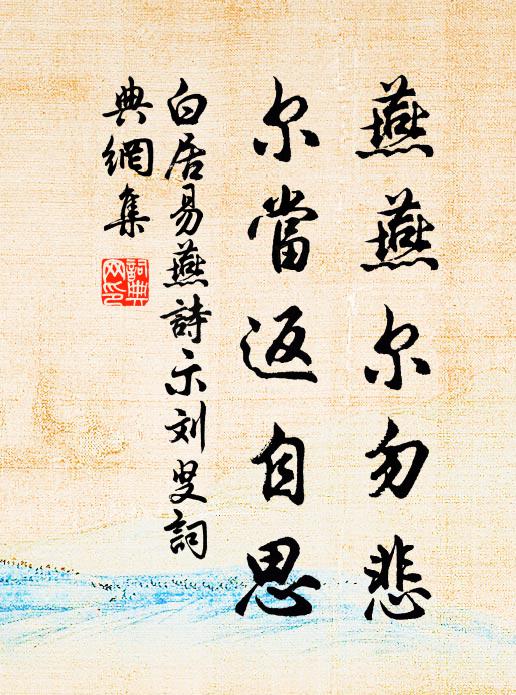 燕燕尔勿悲
尔當返自思
白居易燕詩示刘叟詞
典網集
詞典
网印